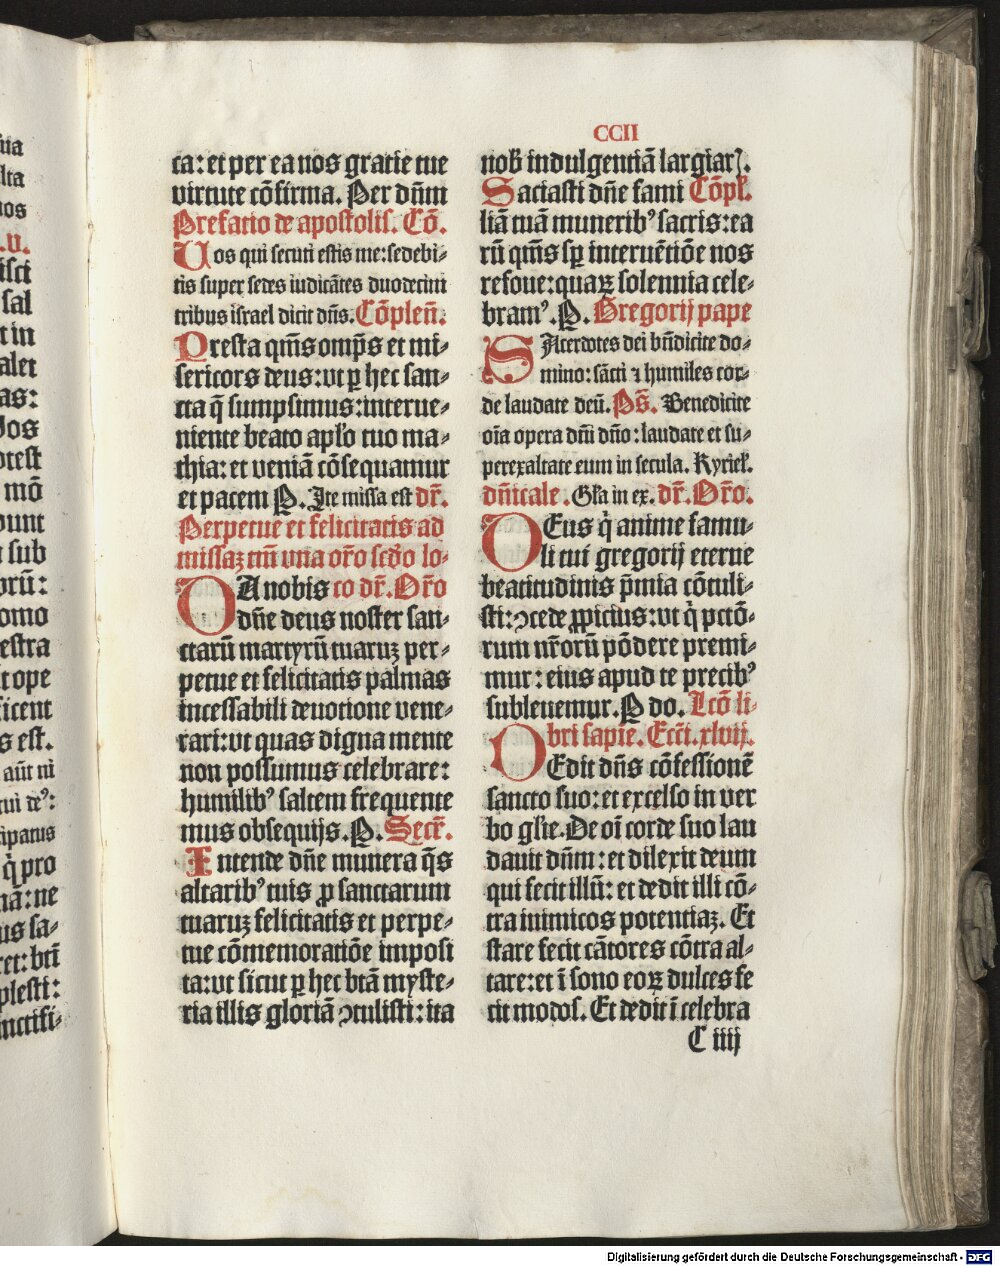 CCII
ta: et per ea nos gratie tue
virtute cōfirma. Per dn̄m
Prefatio de apostolis. Cō.
Uos qui secuti estis me: sedebi⸗
tis super sedes iudicātes duodecim
tribus israel dicit dn̄s. Cōplen̄.
Presta qm̄s omp̄s et mi⸗
sericors deus: vt ꝑ hec san⸗
cta q̄ sumpsimus: interue⸗
niente beato apl'o tuo ma⸗
thia: et veniā cōsequamur
et pacem P. Ite missa est dr̄.
Perpetue et felicitatis ad
missaꝫ cū vna or̄o scd'o lo⸗
DA nobis co dr̄. Or̄o
dn̄e deus noster san⸗
ctarū martyrū tuaruꝫ per⸗
petue et felicitatis palmas
incessabili deuotione vene⸗
rari: vt quas digna mente
non possumus celebrare:
humilibꝰ saltem frequente
mus obsequijs. P. Secr̄.
Intende dn̄e munera q̄s
altaribꝰ tuis ꝓ sanctarum
tuaruꝫ felicitatis et perpe⸗
tue cōmemoratiōe imposi
ta: vt sicut ꝑ hec btā myste⸗
ria illis gloriā ꝯtulisti: ita
nob̄ indulgentiā largiarꝭ.
Saciasti dn̄e fami Cōpl̄.
liā tuā muneribꝰ sacris: ea
rū qm̄s sp̄ interuētiōe nos
refoue: quaꝝ solennia cele⸗
bramꝰ. P. Gregorij pape
SAcerdotes dei bn̄dicite do⸗
mino: sācti ⁊ humiles cor⸗
de laudate deū. Ps̄. Benedicite
oīa opera dn̄i dn̄o: laudate et su⸗
perexaltate eum in secula. Kyriel̄.
dn̄icale. Gl'a in ex. dr̄. Or̄o.
DEus q̇ anime famu⸗
li tui gregorij eterne
beatitudinis p̄mia cōtuli⸗
sti: ꝯcede ꝓpicius: vt q̇ pctō⸗
rum nr̄orū pōdere premi⸗
mur: eius apud te precibꝰ
subleuemur. P do. Lcō li⸗
bri sapie. Ecci. xlvij.
DEdit dn̄s cōfessionē
sancto suo: et excelso in ver
bo gl'ie. De oī corde suo lau
dauit dn̄m: et dilexit deum
qui fecit illū: et dedit illi cō⸗
tra inimicos potentiaꝫ. Et
stare fecit cātores cōtra al⸗
tare: et ī sono eoꝝ dulces fe
cit modos. Et dedit ī celebra
C iiij
Digitalisierung gefördert durch die Deutsche Forschungsgemeinschaft - DFG